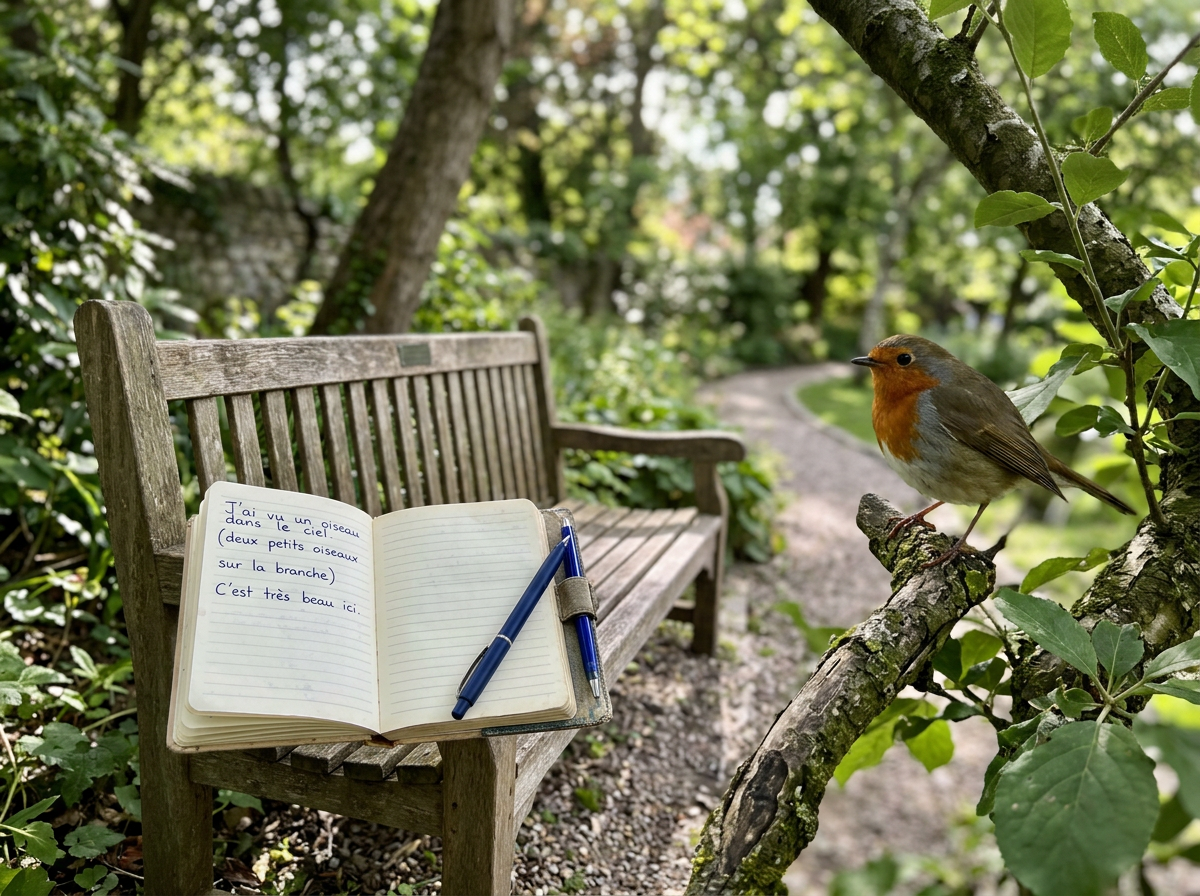 J'ai vu un oiseau
dans le ciel.
(deux petits oiseaux
sur la branche)
C'est très beau ici.